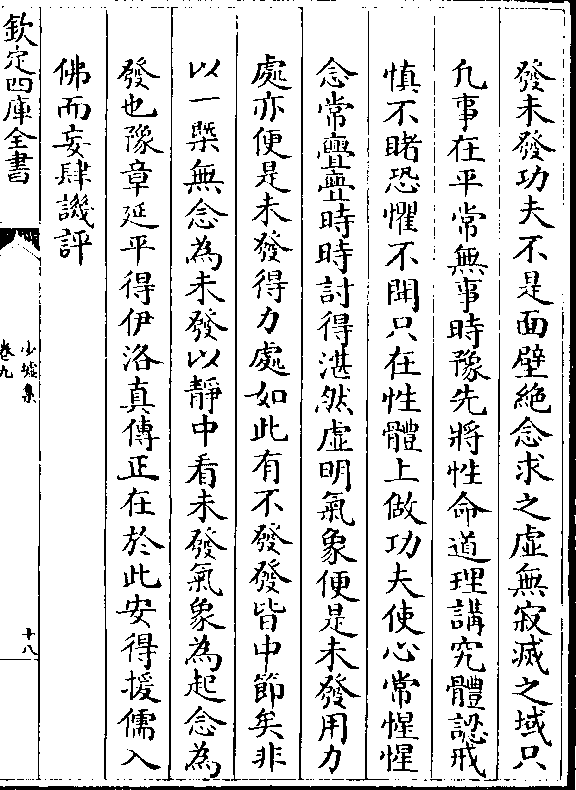 發未發功夫不是面壁絶念求之虛無寂滅之域只
凢事在平常無事時豫先將性命道理講究體認戒
慎不睹恐懼不聞只在性體上做功夫使心常惺惺
念常亹亹時時討得湛然虛明氣象便是未發用力
處亦便是未發得力處如此有不發發皆中節矣非
以一槩無念為未發以靜中看未發氣象為起念為
發也豫章延平得伊洛真傳正在於此安得援儒入
佛而妄肆譏評
欽定四庫全書
少墟集
卷九
十八